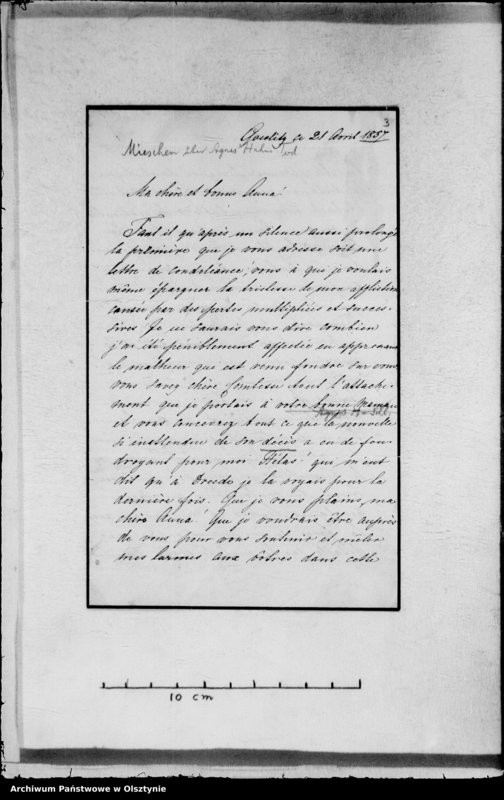 3
ce 21 Avril 1857
über Agnes Tod
Ma chère et bonne Anna!
Faut il qu'après un silence aussi prolongé
la première que je vous adresse soit une
lettre de condoléance, vous à que je voulais
même épargner la tristesse de mon affliction
causée par des pertes multipliées et succes-
sives Je ne saurais vous dire combien
j'ai été péniblement affectée en apprenant
le malheur qui est venu fondre sur vous
vous savez chère Comtesse tout l'attache-
ment que je portais à votre bonne Maman
Agnes
et vous concevrez tout ce que la nouvelle
si inattendue de son décès a eu de fou-
droyant pour moi Hélas! qui m'eut
dit qu'à Dresde je la voyais pour la
dernière fois. Que je vous plains, ma
chère Anna! Que je voudrais être auprès
de vous pour vous soutenir et mêler
mes larmes aux vôtres dans cette
10 cm
Archiwum Państwowe w Olsztynie